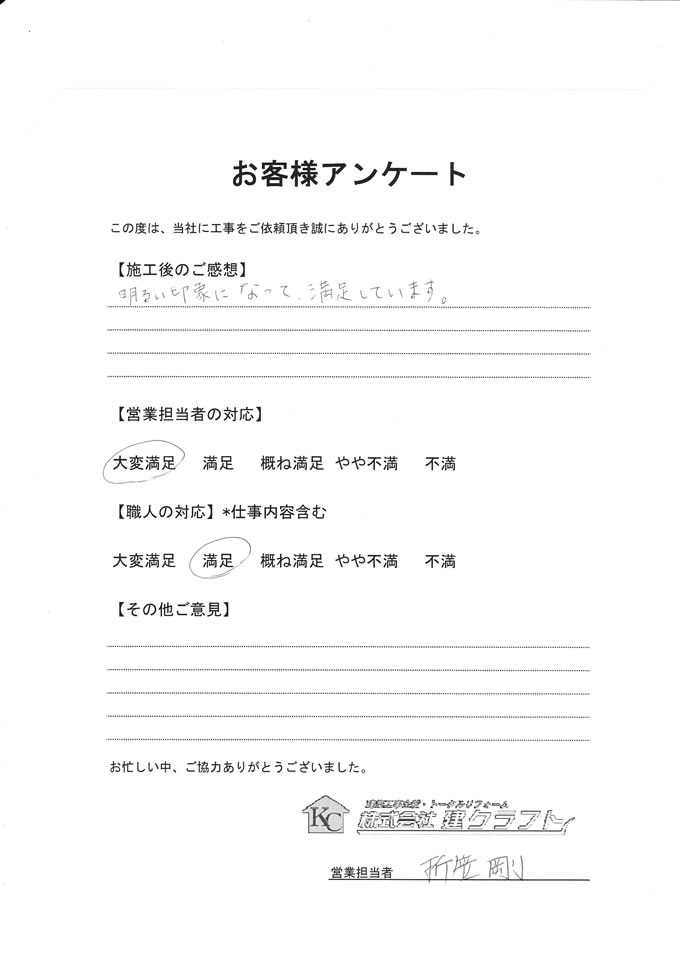 お客様アンケート
この度は、当社に工事をご依頼頂き誠にありがとうございました。
【施工後のご感想】
明るい印象になって、満足しています。
【営業担当者の対応】
大変満足 満足 概ね満足 やや不満 不満
【職人の対応】*仕事内容含む
大変満足 満足 概ね満足 やや不満 不満
【その他ご意見】
お忙しい中、ご協力ありがとうございました。
KC
トータルリフォーム
株式会社 建クラフト
営業担当者 折笠 剛